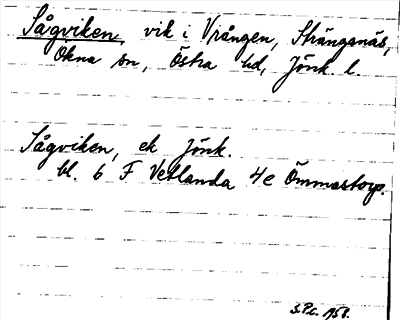 Sågviken, vik i Vrången, Strängsnäs,
Ökna sn, Östra hd, Jönk. l.
Sågviken, ek Jönk.
bl. 6 F Vetlanda 4e Ömmestorp.
S.P.c. 1958.